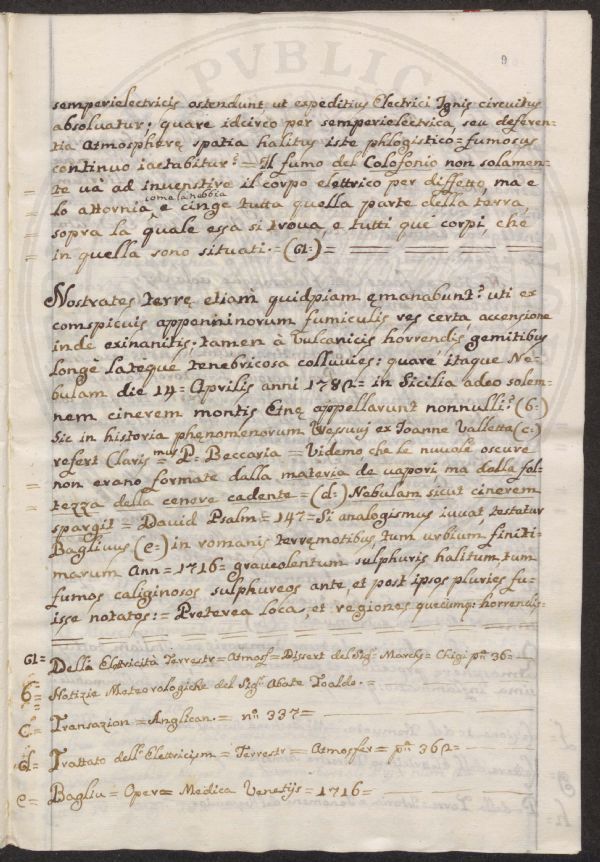 PVBLICA
9
semperielectricis ostendunt ut expeditius Electrici Ignis circuitus
absoluatur: quare idcirco per semperielectrica, seu deferen=
tia Atmospherę spatia halitus iste phlogistico=fumosus
continuo iactabitur? = Il fumo del Colofonio non solamen=
te ua ad inuenstire il corpo elettrico per diffetto, ma e
come la nebbia
lo attornia, e cinge tutta quella parte della terra,
sopra la quale essa si troua, e tutti que' corpi, che
in quella sono situati.= (a=) =
Nostrates terrę etiam quidpiam ęmanabunt? uti ex
conspicuis appenninorum fumiculis res certa, accensione
inde exinanitis; tamen à Vulcanicis horrendis gemitibus
longè latèque tenebricosa colluvies: quare itaque Ne=
bulam die 14= Aprilis anni 1782= in Sicilia adeo solem=
nem cinerem montis Etnę appellarunt nonnulli? (b=)
Sic in historia phęnomenorum Vessuuij ex Ioanne Valletta (c=)
refert Claris=mus P= Beccaria = Videmo che le nuuole oscure
non erano formate dalla materia de vapori, ma dalla fol=
tezza della cenere cadente = (d=) Nebulam sicut cinerem
spargit = David Psalm= 147= Si analogismus iuuat, testatur
Baglivus (e=) in romanis terręmotibus, tum urbium finiti=
marum Ann= 1716= graueolentum sulphuris halitum, tum
fumos caliginosos sulphureos ante, et post ipsos pluries fu=
isse notatos:= Preterea loca, et regiones quęcumq: horrendis=
a= Della Elettricità Terrestr= Atmosf= Dissert del Sig= March= Chigi pn 36=
b= Notizie Meteorologiche del Sig= Abate Toaldo.=
c= Transazion= Anglican.= n° 337=
d= Trattato dell'Elettricism= Terrestr= Atmosfer= pn 362=
e= Bagliu= Opera Medica Venetijs= 1716=